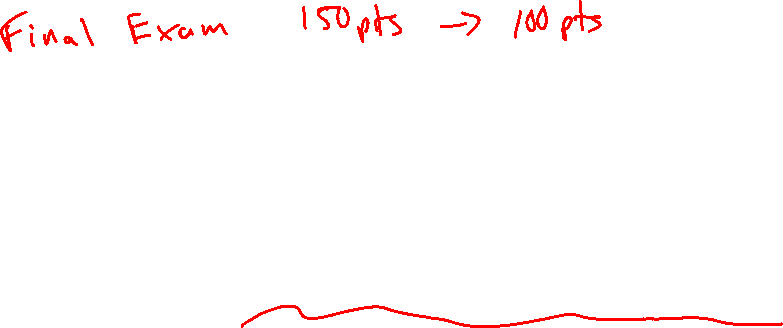 Final Exam 150pts → 100 pts